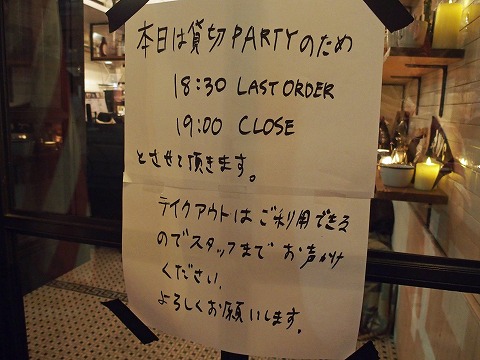 本日は貸切PARTYのため
18:30 LAST ORDER
19:00 CLOSE
とさせて頂きます。
テイクアウトはご利用できる
のでスタッフまでお声がけ
ください。
よろしくお願いします。